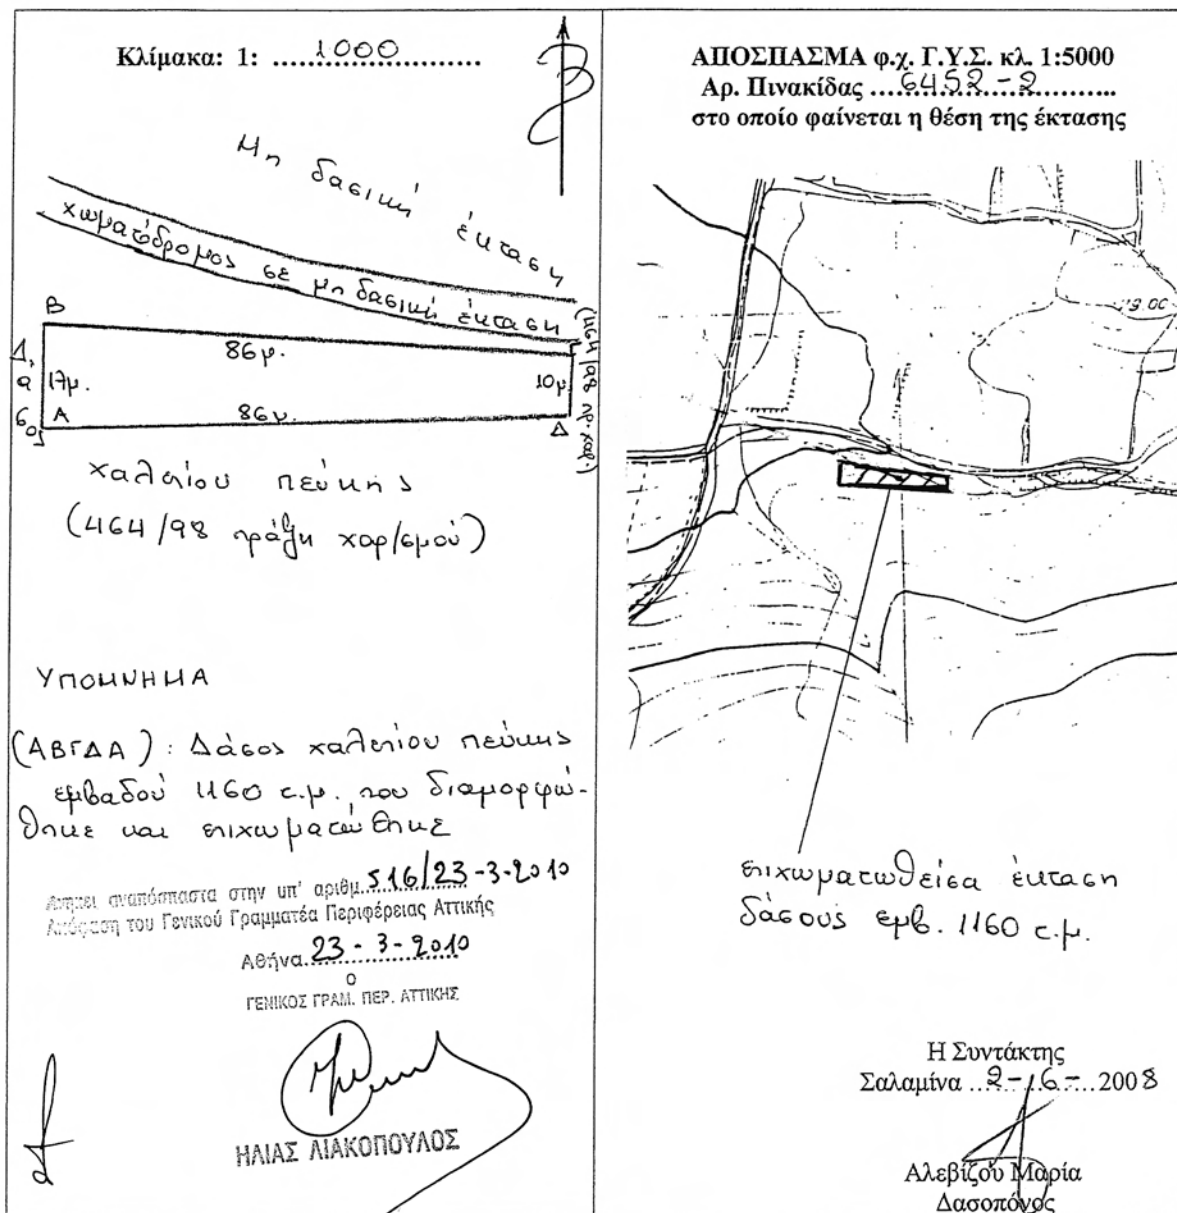 Κλίμακα: 1: ....1000....
Μη δασική έκταση
χωματόδρομος σε μη δασική έκταση
Β
86μ.
Γ
17μ.
10μ
Α
86μ.
Δ
Δάσος
(464/98 πρ. χαρ.)
χαλεπίου πεύκης
(464/98 πράξη χαρ/σμού)
ΥΠΟΜΝΗΜΑ
(ΑΒΓΔΑ): Δάσος χαλεπίου πεύκης
εμβαδού 1160 τ.μ. που διαμορφώ-
θηκε και επιχωματώθηκε
Ανήκει αναπόσπαστα στην υπ' αριθμ. 516/23-3-2010
Απόφαση του Γενικού Γραμματέα Περιφέρειας Αττικής
Αθήνα 23-3-2010
Ο
ΓΕΝΙΚΟΣ ΓΡΑΜ. ΠΕΡ. ΑΤΤΙΚΗΣ
ΗΛΙΑΣ ΛΙΑΚΟΠΟΥΛΟΣ
ΑΠΟΣΠΑΣΜΑ φ.χ. Γ.Υ.Σ. κλ. 1:5000
Αρ. Πινακίδας ....6452-2....
στο οποίο φαίνεται η θέση της έκτασης
επιχωματωθείσα έκταση
δάσους εμβ. 1160 τ.μ.
Η Συντάκτης
Σαλαμίνα ..2-6-..2008
Αλεβίζου Μαρία
Δασοπόνος